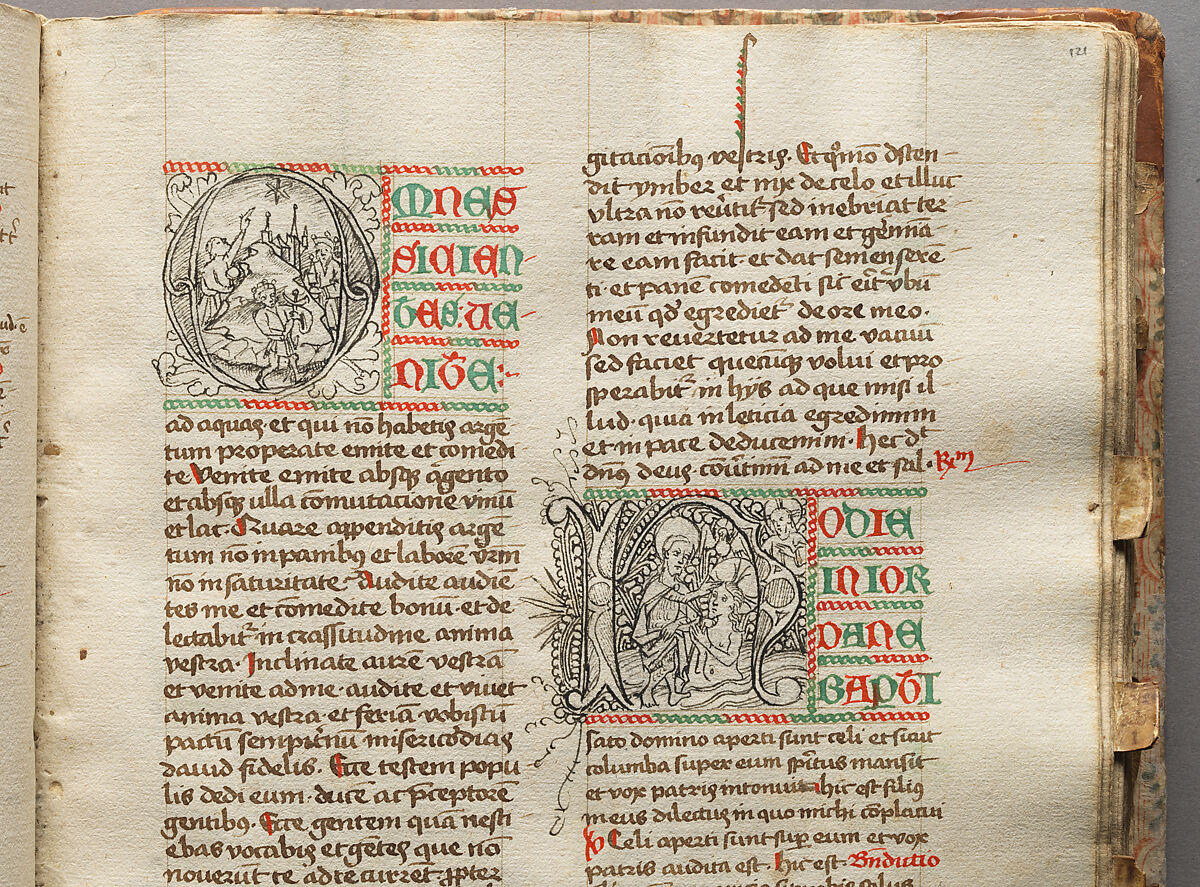 121
OMNES
SICIEN
TES: VE
NITE:
ad aquas. et qui nō habetis argē
tum properate emite et comedi
te Venite emite absqꝫ argento
et absqꝫ ulla cōmutacione vinū
et lac. Quare appenditis argē
tum nō in panibꝰ et laborē vr̄m
nō in saturitate. Audite audiē
tes me et cōmedite bonū. et de
lectabitᷣ in crassitudine anima
vestra. Inclinate aurē vestrā
et venite ad me. audite et viuet
anima vestra. et feriā vobiscū
pactū sempitͥnū misericordias
dauid fidelis. Ecce testem popu
lis dedi eum. ducē ac p̄ceptorē
gentibꝰ. Ecce gentem quā nesci
ebas vocabis et gētes que nō
nouerūt te ad te current. ꝓpter
gitacionibꝰ vestris. Et qͦmō dscen
dit ymber et nix de celo et illuc
vltra nō reuͥtitᷣ sed inebriat ter
ram et infundit eam et gͥmina
re eam facit. et dat semen serē
ti. et panē comedēti sic erit vbū
meū qd̓ egredietᷣ de ore meo.
Non reuertetur ad me vacuū
sed faciet quecūqꝫ volui et pro
sperabitᷣ in hijs ad que misi il
lud. quia in leticia egredimini
et in pace deducemini. Hec dt̄
dn̄s deus. conu̓timini ad me et sal. Rm̄
HODIE
IN IOR
DANE
BAPTI
sato domino aperti sunt celi et sicut
columba super eum sp̄ritus mansit
et vox patris intonuit hic est filiꝰ
meus dilectus in quo michi cōplacui
V Celi aperti sunt sup̱ eum et vox
patris audita est. Hic est. Bn̄dictio